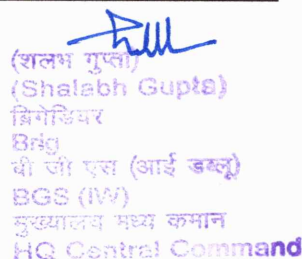 (शलभ गुप्ता)
(Shalabh Gupta)
ब्रिगेडियर
Brig
बी जी एस (आई डब्लू)
BGS (IW)
मुख्यालय मध्य कमान
HQ Central Command